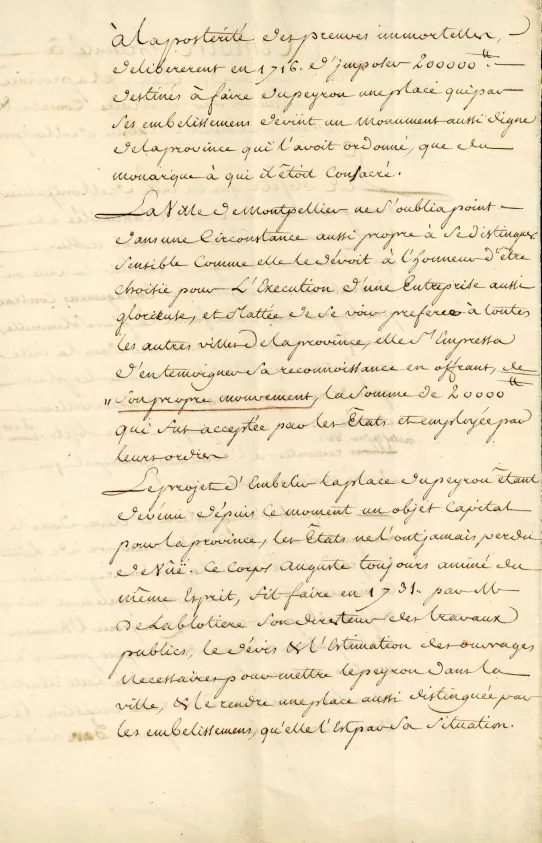 à la postérité des preuves immortelles,
délibererent en 1716. d'jmposer 200000 ᵗᵗ.
destinés à faire du peyrou une place qui par
ses embelissemens devint un monument aussi digne
de la province qui l'avoit ordonné, que du
monarque à qui il étoit Consacré.
La Ville de Montpellier ne s'oublia point
dans une Circonstance aussi propre à se distinguer
sensible Comme elle le dévoit à l'honneur d'être
choisie pour L'Execution d'une Entreprise aussi
glorieuse, et flattée de se voir preferée à toutes
les autres villes de la province, elle s'Empressa
d'en temoigner sa reconnoissance en offrant, de
" son propre mouvement, la Somme de 20000 ᵗᵗ
qui fut acceptée par les États et employée par
leurs ordres
Le projet d'Embelir la place du peyrou étant
dévenu dépuis ce moment un objet Capital
pour la province, les États ne l'ont jamais perdu
de Vüe. Ce Corps Auguste toujours animé du
même Esprit, fit faire en 1731. par Mr
De Lablotiere son directeur des travaux
publics, le dévis & l'Estimation des ouvrages
Necessaires pour mettre le peyrou dans la
ville, & le rendre une place aussi distinguée par
les embelissemens, qu'elle l'Est par sa situation.